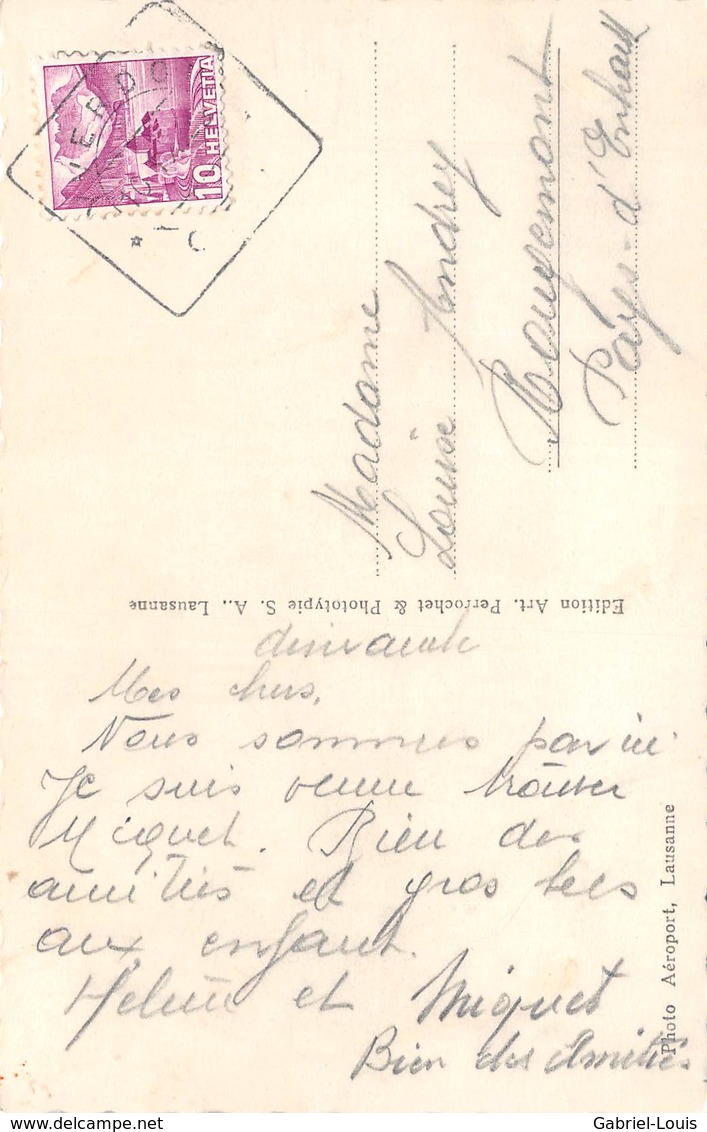 YVERDON
HELVETIA
10
Madame
Louise Andrey
Rougemont
Pays-d'Enhaut
Edition Art. Perrochet & Phototypie S. A., Lausanne
dimanche
Mes chers,
Nous sommes par ici.
Je suis venue trouver
Miquet. Bien des
amitiés et gros becs
aux enfant.
Hélène et Miquet
Bien des Amitiés
Photo Aéroport, Lausanne
Gabriel-Louis